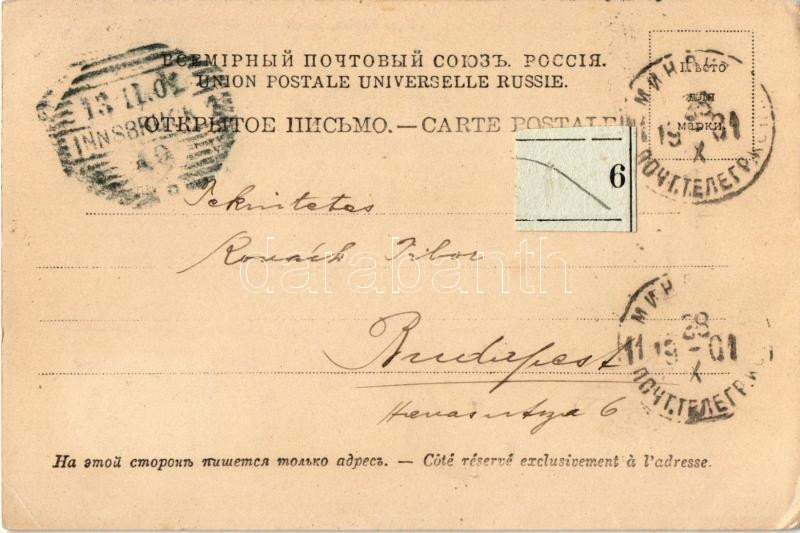 ВСЕМІРНЫЙ ПОЧТОВЫЙ СОЮЗЪ. РОССІЯ.
UNION POSTALE UNIVERSELLE RUSSIE.
ОТКРЫТОЕ ПИСЬМО. — CARTE POSTALE
Мѣсто
для
марки.
13.11.01
INNSBRUCK
МИН
28
11 19-01
X
ПОЧТ.ТЕЛЕГР.
6
Tekintetes
Kovách Tibor
Budapest
6
darabanth
МИН
28
11 19-01
X
ПОЧТ.ТЕЛЕГР.
На этой сторонѣ пишется только адресъ. — Côté réservé exclusivement à l'adresse.